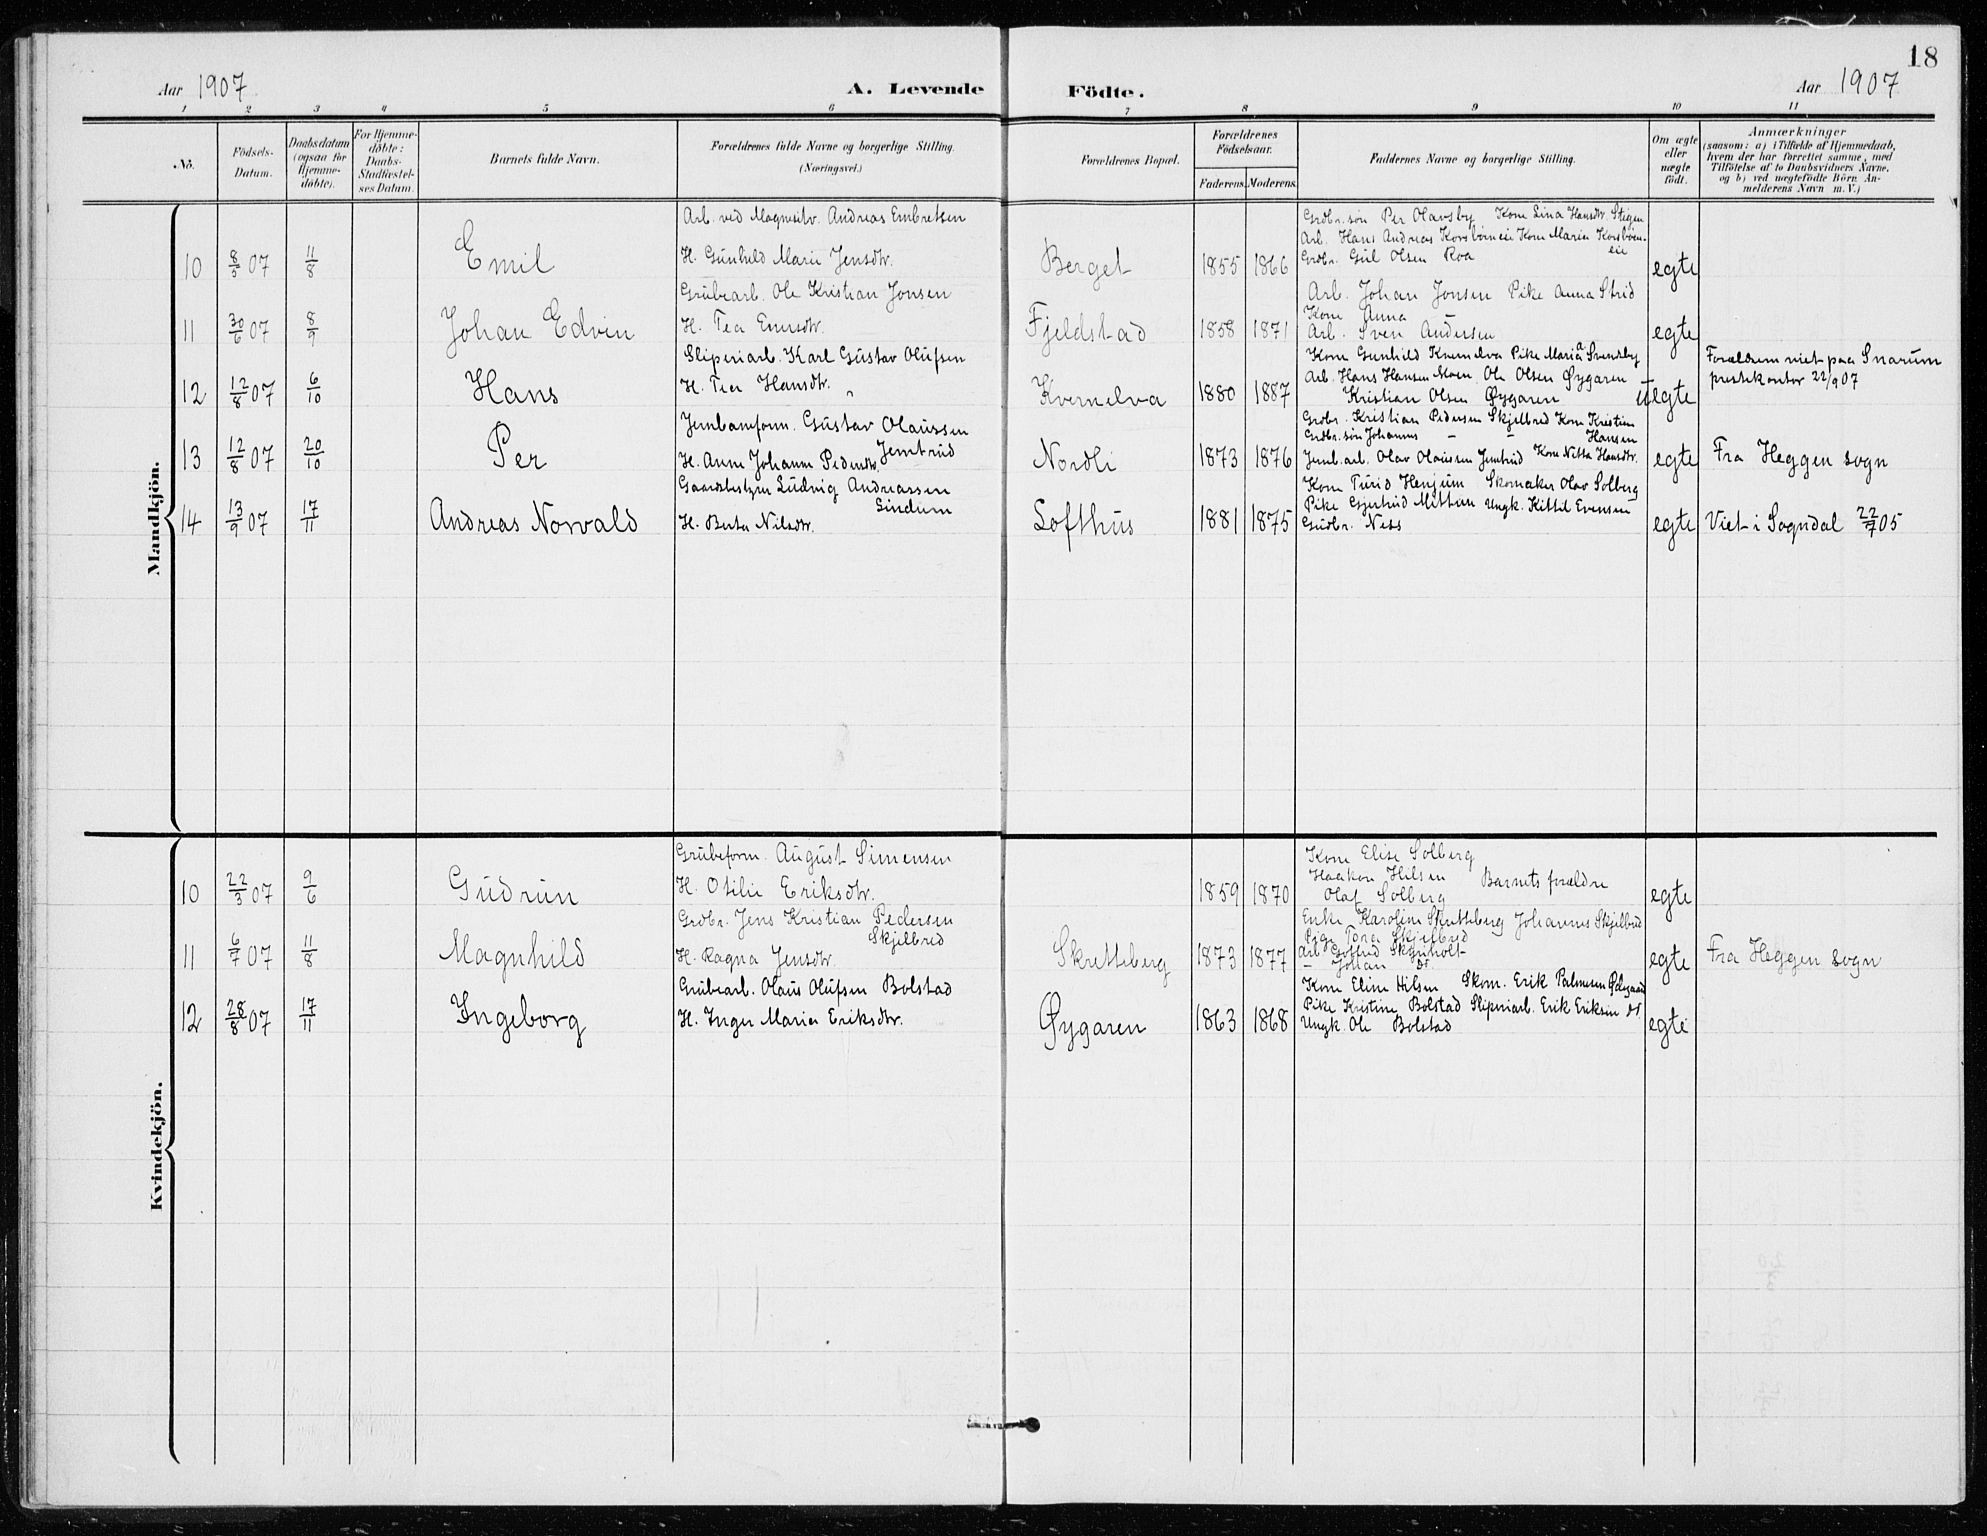 18
Aar 1907
A. Levende Födte.
Aar 1907
1 2 3 4 5 6 7 8 9 10 11
Nö.
Födsels-Datum.
Daabsdatum (ogsaa for Hjemme-döbte).
For Hjemme-döbte: Daabs-Stadfæstel-ses Datum.
Barnets fulde Navn.
Forældrenes fulde Navne og borgerlige Stilling. (Næringsvei.)
Forældrenes Bopæl.
Forældrenes Födselsaar.
Faderens. Moderens.
Faddernes Navne og borgerlige Stilling.
Om ægte eller uægte födt.
Anmærkninger
(saasom: a) i Tilfælde af Hjemmedaab,
hvem der har forrettet samme, med
Tilföielse af to Daabsvidners Navne,
og b) ved uægtefödte Börn An-
melderens Navn m. V.)
Mandkjön.
Arb. ved Magnesitv. Andreas Embretsen
Grdbr. søn Per Olavsby Kone Lina Hansdtr. Stigen
Arb. Hans Andreas Korsbøneie Kone Maria Korsbøen-
eie
10 8/5 07 11/8 Emil H. Gunhild Marie Jensdtr. Berget 1855 1866 Grdbr. Gul Olsen Roa egte
Grubearb. Ole Kristian Jonsen
Arb. Johan Jonsen Pike Anna Strid
Kone Anna –
11 30/6 07 8/9 Johan Edvin H. Tea Evensdtr. Fjeldstad 1858 1871 Arb. Sven Andersen egte
Sliperiarb. Karl Gustav Olufsen
Kone Gunhild Kvernelva Pike Maria Svendby
Arb. Hans Hansen Moen Ole Olsen Øygaren
Forældrene viet paa Snarum
prestekontor 22/9 07
12 12/8 07 6/10 Hans H. Tea Hansdtr. Kvernelva 1880 1887 Kristian Olsen Øygaren uegte
Jernbaneform. Gustav Olaussen
Jemtrud
Grdbr. Kristian Pedersen Skjelbred Kone Kristine
Grdbr. søn Johannes – – Hansen
13 12/8 07 20/10 Per H. Anne Johanne Pedersdtr. Nordli 1873 1876 Jernb. arb. Olav Olaussen Jemtrud Kone Nilla Hansdtr. egte Fra Heggen sogn
Gaardbestyrer Ludvig Andreassen
Lindum
Kone Turid Henjum Skomaker Olav Solberg
Pike Gjertrud Mittun Ungk. Kittil Evensen
14 13/9 07 17/11 Andreas Norvald H. Berta Nilsdtr. Lofthus 1881 1875 Gudbr. Ness egte Viet i Sogndal 22/7 05
Kvindekjön.
Grubeform. August Simensen
Kone Elise Solberg
Haakon Hilsen Barnets forældre
10 22/3 07 9/6 Gudrun H. Otilie Eriksdtr. 1859 1870 Olaf Solberg egte
Grdbr. Jens Kristian Pedersen
Skjelbred
Enke Karoline Skretteberg Johannes Skjelbred
Pige Tora Skjelbred
Arb. Gotfred
– Johan do.
11 6/7 07 11/8 Magnhild H. Ragna Jensdtr. Skretteberg 1873 1877 egte Fra Heggen sogn
Grubearb. Olaus Olufsen Bolstad
Kone Eline Hilsen Skom. Erik Palmesen Ødegaard
Pike Kristine Bolstad Sliperiarb. Erik Eriksen do.
12 28/8 07 17/11 Ingeborg H. Inger Maria Eriksdtr. Øygaren 1863 1868 Ungk. Ole Bolstad egte